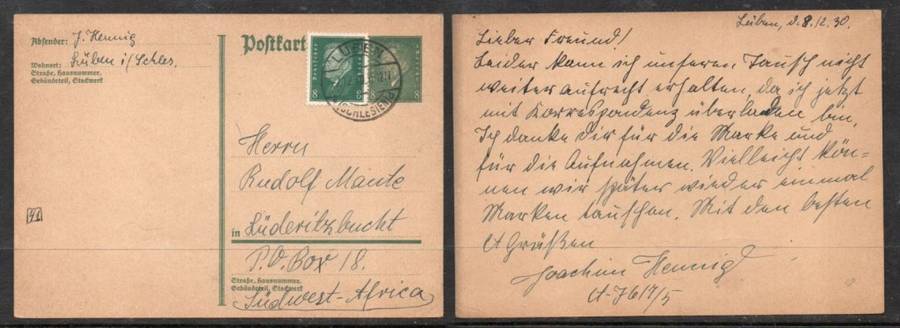 Absender: J. Hennig
Wohnort: Lüben i/Schles.
Straße, Hausnummer,
Gebäudeteil, Stockwerk
Postkart
LÜBEN
(SCHLESIEN)
8
8
Herrn
Rudolf Mante
in Lüderitzbucht
P.O. Box 18.
Straße, Hausnummer,
Gebäudeteil, Stockwerk
Südwest-Africa
Lüben, d. 8.12.30.
Lieber Freund!
Leider kann ich unseren Tausch nicht
weiter aufrecht erhalten, da ich jetzt
mit Korrespondenz überladen bin.
Ich danke dir für die Marke und
für die Aufnahmen. Vielleicht kön-
nen wir später wieder einmal
Marken tauschen. Mit den besten
Grüßen
Joachim Hennig